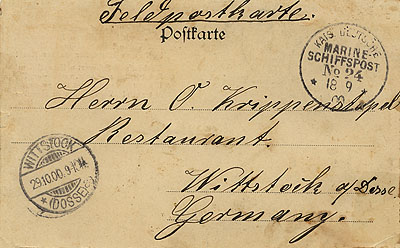 Feldpostkarte.
Postkarte
KAIS. DEUTSCHE
MARINE-
SCHIFFSPOST
No 24
18 9
Herrn O. Krippenstapel
Restaurant.
WITTSTOCK
29.10.00.9-10V.
* (DOSSE)
Wittstock a/Dosse
Germany.